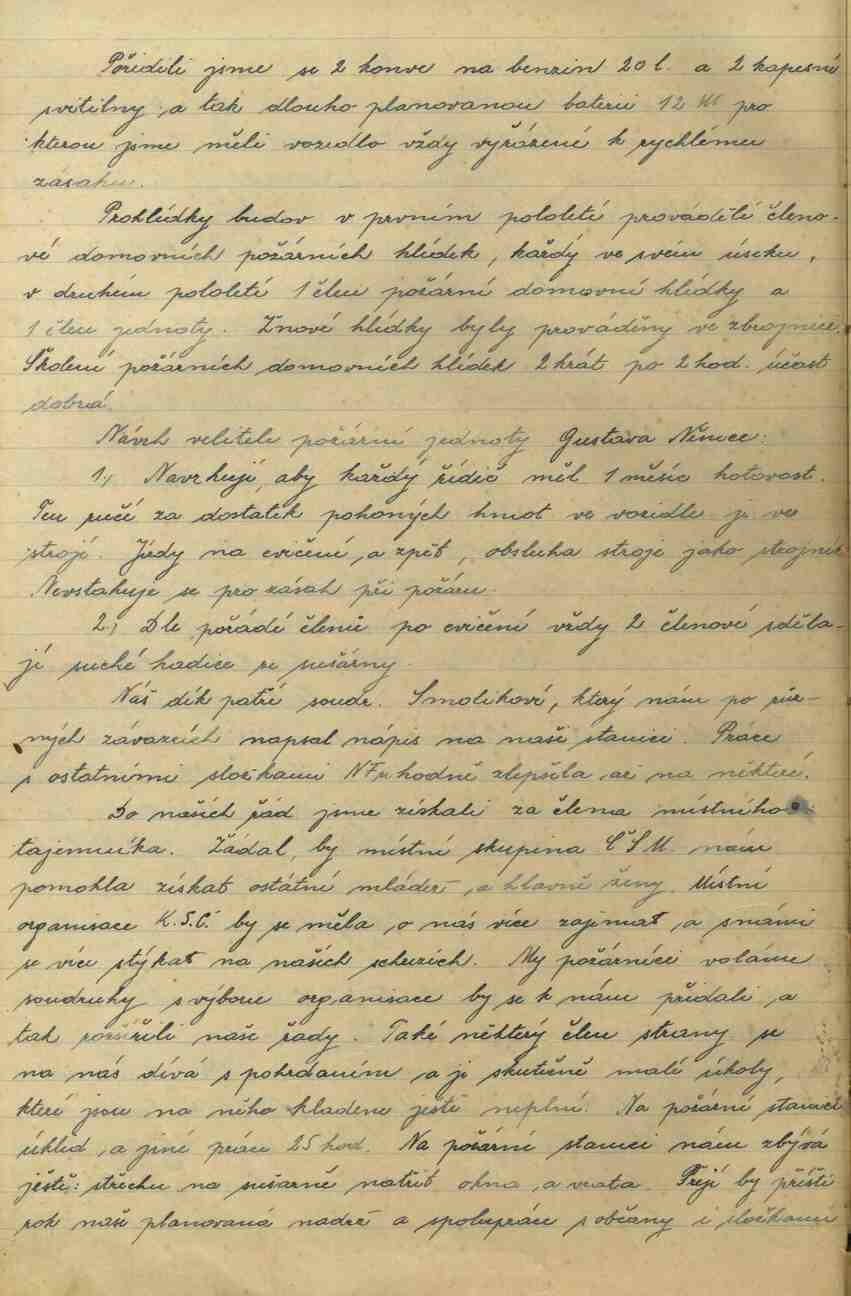 Pořídili jsme se 2 konve na benzin 20 l. a 2 kapesní
svítilny, a tak dlouho planovanou baterii 12 pro
kterou jsme měli vozidlo vždy vyřázené k rychlému
zásahu.
Prohlídky budov v prvním pololetí prováděli členo-
vé domovních požárních hlídek, každý ve svém úseku,
v druhém pololetí 1 člen požární domovní hlídky a
1 člen jednoty. Žnové hlídky byly prováděny ve zbrojnici.
Školení požárních domovních hlídek 2 krát po 2 hod. účast
dobrá.
Návrh velitele požární jednoty Gustava Němce:
1.) Navrhuji, aby každý řidič měl 1 měsíc hotovost.
Ten ručí za dostatek pohoných hmot ve vozidle i ve
stroji. Jízdy na cvičení, a zpět, obsluha stroje jako strojník
Nevstahuje se pro zásah při požáru.
2.) Dle pořádí členů po cvičení vždy 2 členové sděla-
jí suché hadice ze sušárny.
Náš dík patří soudr. Smolíkovi, který nám po růz-
ných závazcích napsal nápis na naší stanici. Práce
s ostatními složkami NF se hodně zlepšila, až na některé.
Do našich řád jsme získali za člena místního
tajemníka. Žádal, by místní skupina ČSM nám
pomohla získat ostátní mládež, a hlavně ženy. Místní
organisace K.S.Č. by se měla, o nás více zajímat, a s námi
se více stýkat na našich schůzích. My požárníci voláme
soudruhy s výboru organisace by se k nám přidali, a
tak rozšířili naše řady. Také některý člen strany se
na nás dívá s pohrdáním, a je skutečně malé úkoly,
které jsou na něho kladene ještě neplní. Na požární stanici
úklid, a jiné práce 25 hod. Na požární stanici nám zbývá
ještě: střechu na sušárně natřít okna, a vrata. Přeji by příští
rok naše planovaná nadrž a spolupráce s občany i složkami